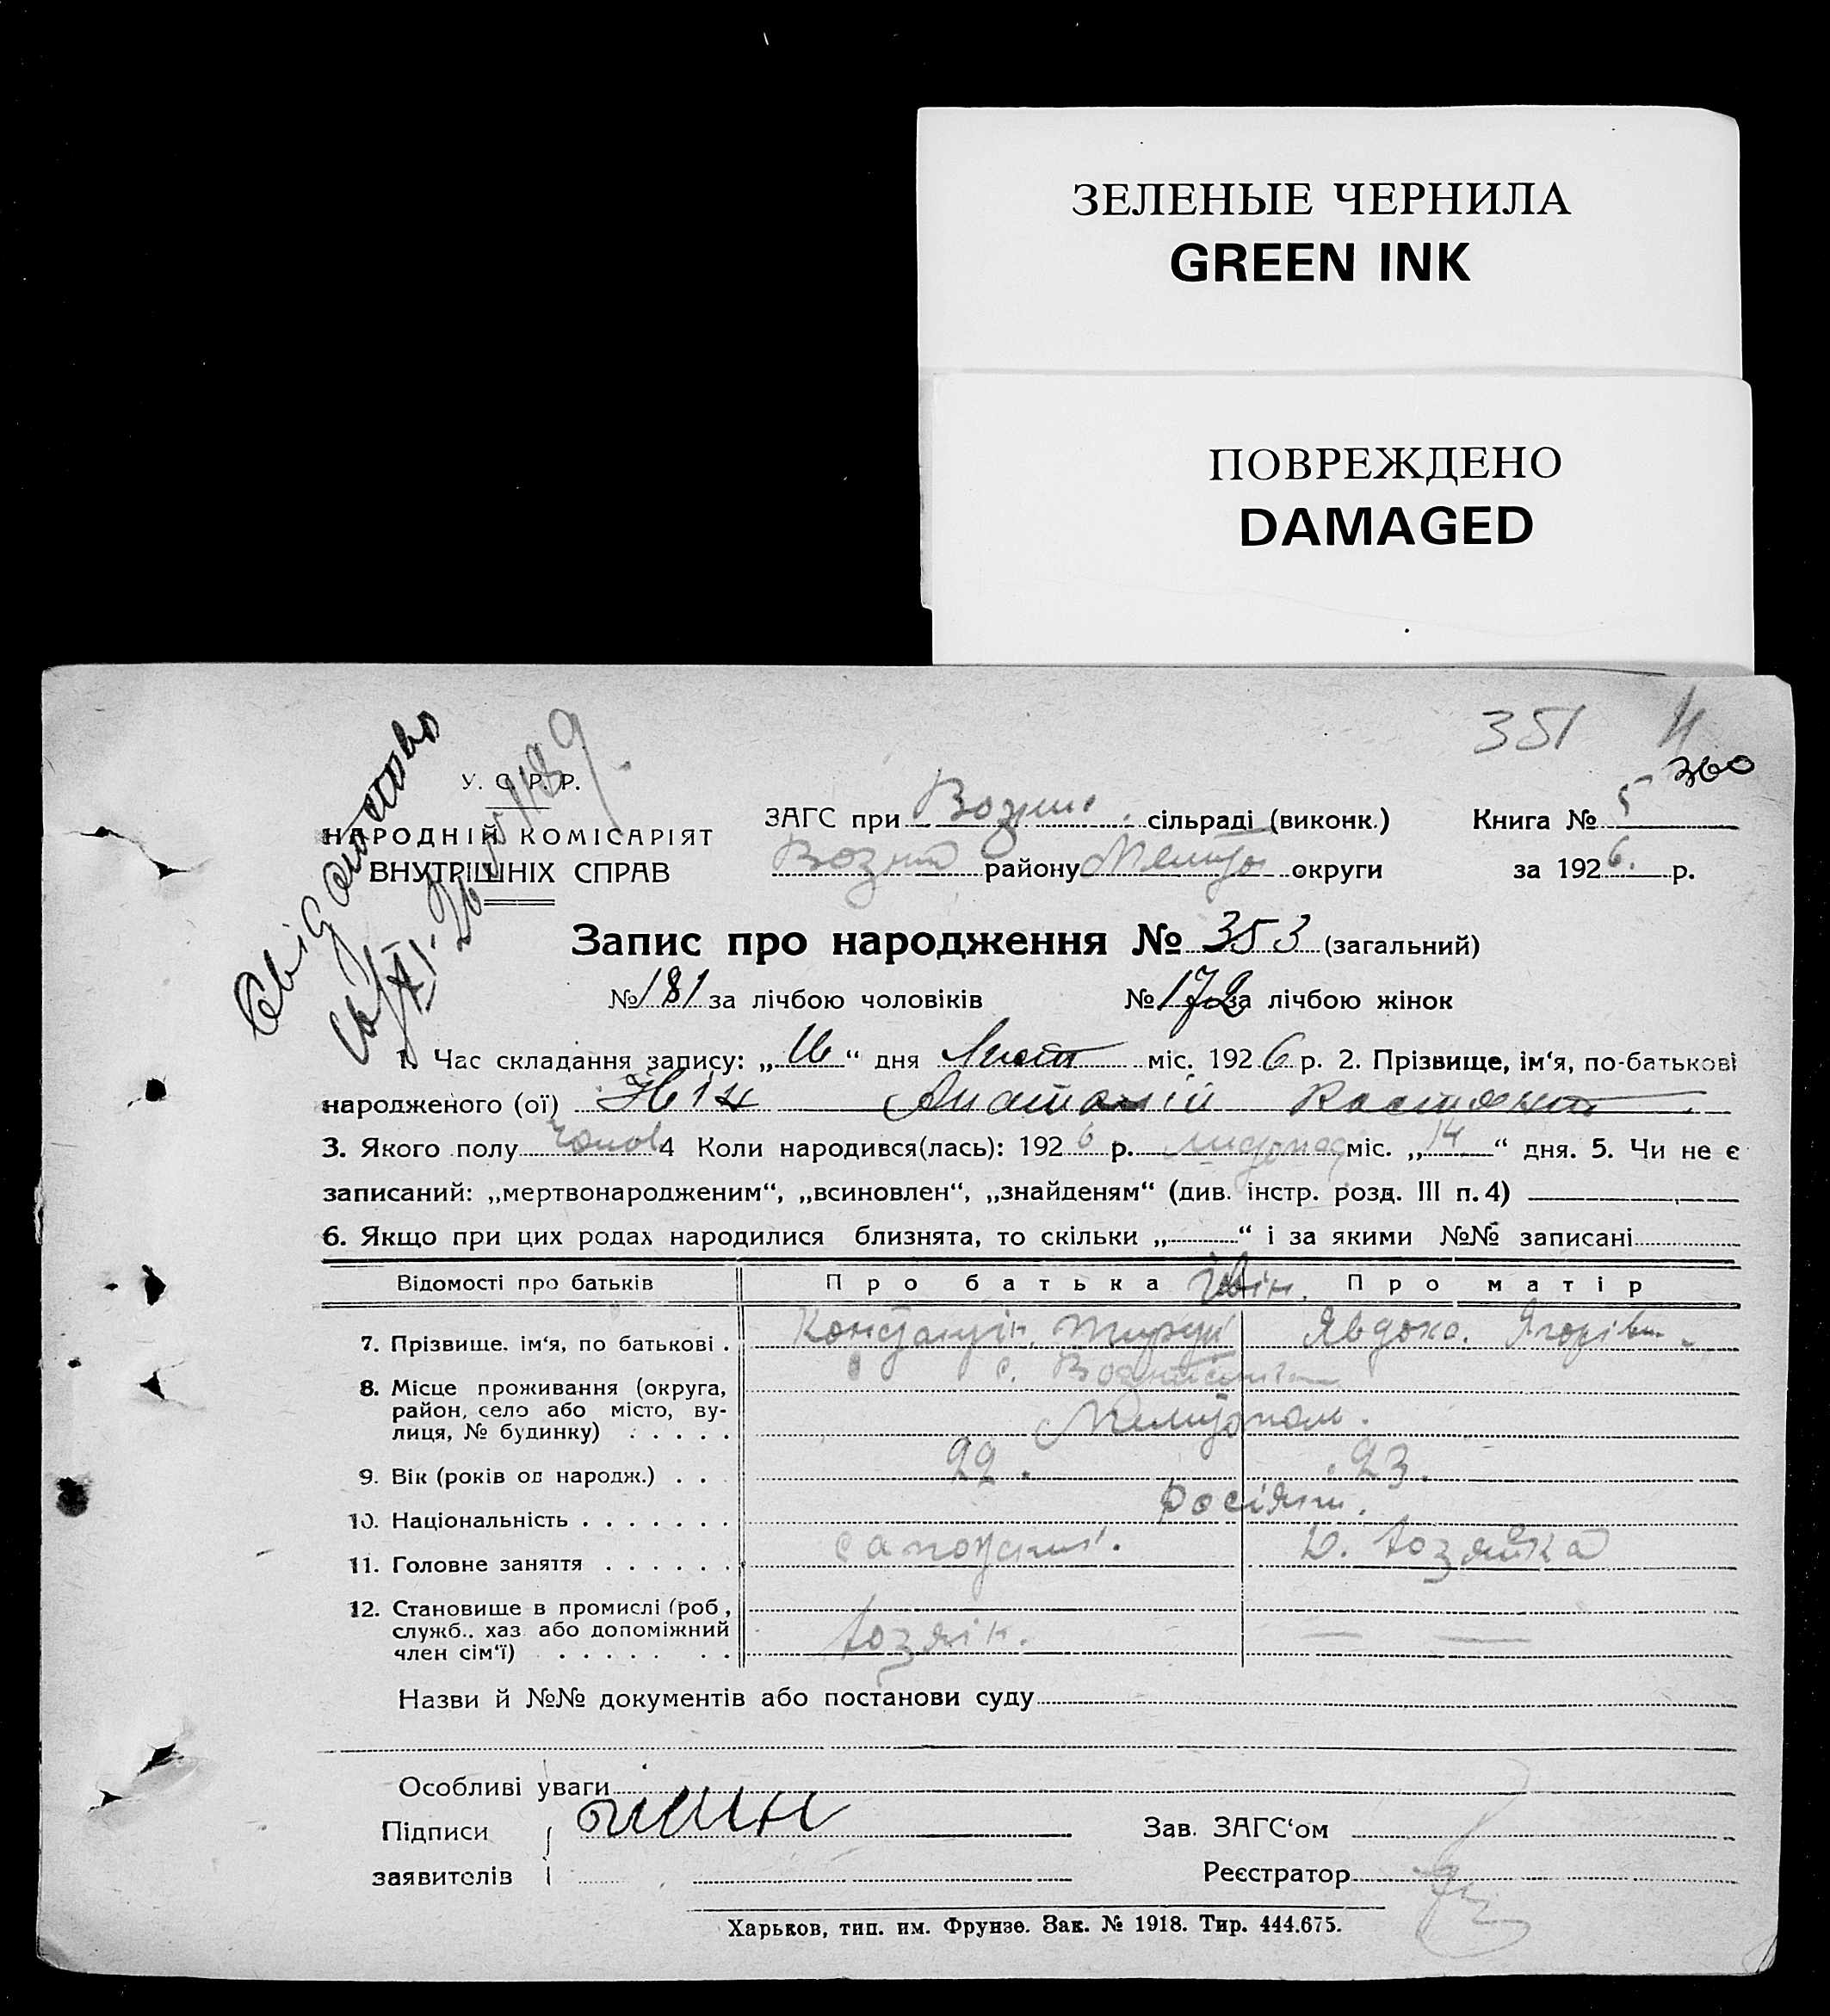 ЗЕЛЕНЫЕ ЧЕРНИЛА
GREEN INK
ПОВРЕЖДЕНО
DAMAGED
351
360
У. С. Р. Р.
НАРОДНІЙ КОМІСАРІЯТ
ВНУТРІШНІХ СПРАВ
ЗАГС при сільраді (виконк.) Книга № 5
району округи за 1926. р.
Запис про народження № 353 (загальний)
№ 181 за лічбою чоловіків № 172 за лічбою жінок
1. Час складання запису: „16“ дня Лист міс. 1926 р. 2. Прізвище, ім‘я, по-батькові
народженого (ої)
3. Якого полу Чолов 4 Коли народився(лась): 1926 р. листопад міс. „14“ дня. 5. Чи не є
записаний: „мертвонародженим“, „всиновлен“, „знайденям“ (див. інстр. розд. III п. 4)
6. Якщо при цих родах народилися близнята, то скільки „ “ і за якими №№ записані
Відомості про батьків Про батька Про матір
7. Прізвище, ім‘я, по батькові . Явдоха.
8. Місце проживання (округа,
район, село або місто, ву-
лиця, № будинку) . . . . .
9. Вік (років од народж.) . . 22. 23.
10. Національність . . . . . . .
11. Головне заняття . . . . . . Д. Хозяйка
12. Становище в промислі (роб.,
служб., хаз. або допоміжний
член сім‘ї) . . . . . . . Хозяін.
Назви й №№ документів або постанови суду
Особливі уваги
Підписи Зав. ЗАГС‘ом
заявителів Реєстратор
Харьков, тип. им. Фрунзе. Зак. № 1918. Тир. 444.675.